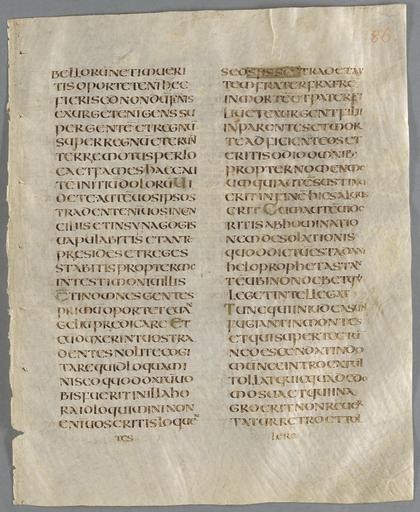 86
BELLORUMETIMUERI
TISOPORTETENIHEC
FIERISEDNONDŪFINIS
EXURGETENĪGENSSU
PERGENTĒETREGNŪ
SUPERREGNŪETERUN
TERREMOTUSPERLO
CAETFAMESHAECAU
TĒINITIŪDOLORŪUI
DETEAUTĒUOSIPSOS
TRADENTENĪUOSINCON
CILIISETINSYNAGOGIS
UAPULABITISETANTE
PRESIDESETREGES
STABITISPROPTERME
INTESTIMONIŪILLIS
ETINOMNESGENTES
PRIMŪOPORTETEUAN
GELIŪPREDICARIET
CŪOMERINTUOSTRA
DENTESNOLITECOGI
TAREQUIDLOQUAMI
NISEDQUODDATŪUO
BISFUERITINILLAHO
RAIDLOQUIMININON
ENĪUOSERITISLOQUEN
TES
SEDSPSSCSTRADETAU
TEMFRATERFRATRE
INMORTĒETPATERFI
LIŪETEXURGENTFILII
INPARENTESETMOR
TEADFICIENTEOSET
ERITISODIOOMNIB
PROPTERNOMENME
UMQUIAUTĒSUSTINU
ERITINFINĒHICSALUUS
ERITCUMAUTĒUIDE
RITISABHOMINATIO
NEMDESOLATIONIS
QUODDICTŪESTADANI
HELOPROPHETASTAN
TĒUBINONDEBETQUI
LEGETINTELLEGAT
TUNCQUIINIUDEASUNT
FUGIANTINMONTES
ETQUISUPERTECTU
NEDESCENDATINDO
MŪNECINTROEATUT
TOLLATQUICQUADEDO
MOSUAETQUIINA
GROERITNONREUER
TATURRETROETTOL
LERE